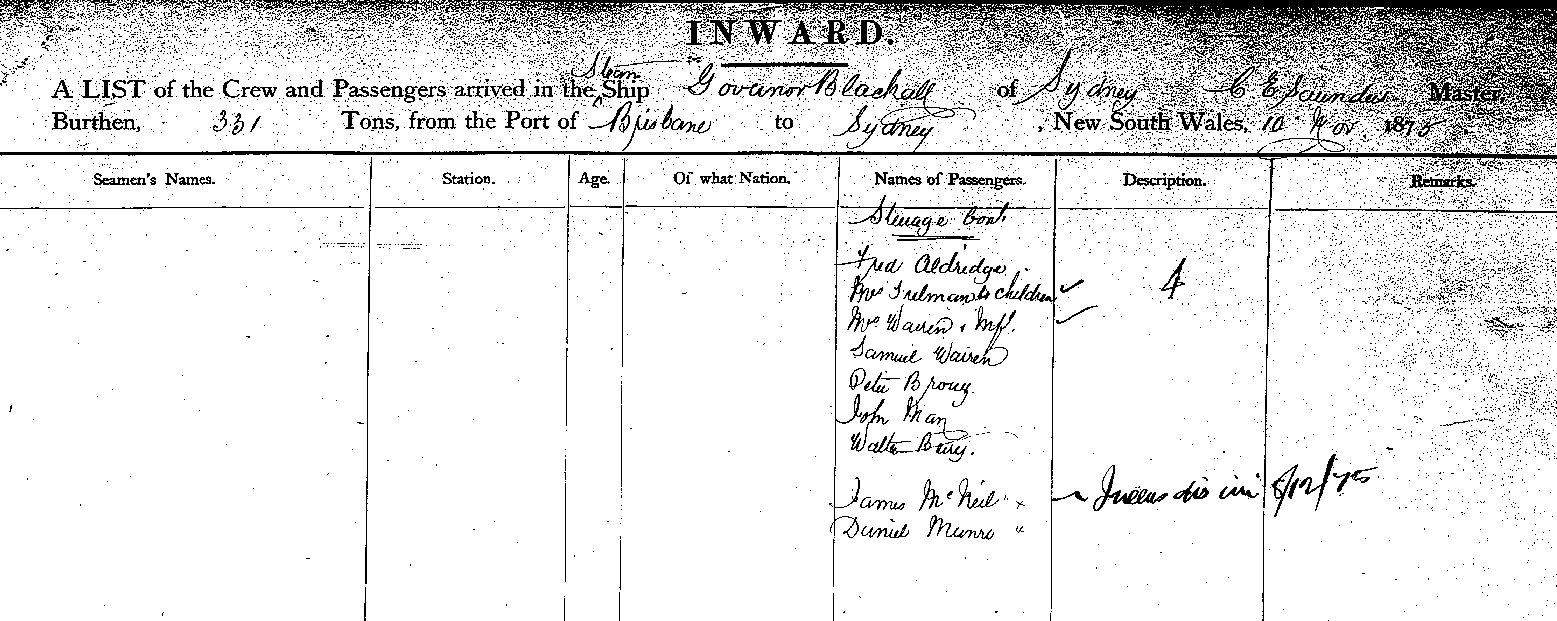 INWARD.
Steam
A LIST of the Crew and Passengers arrived in the Ship Governor Blackall of Sydney C E Saunders Master,
Burthen, 331 Tons, from the Port of Brisbane to Sydney, New South Wales, 10 Nov. 1875
Seamen's Names. Station. Age. Of what Nation. Names of Passengers. Description. Remarks.
Steerage Cont
Fred Aldridge. 4
Mrs children
Mrs Warren & Inft.
Samuel Warren
Peter
John Man
Walter Barry.
James McNeil 8/12/75
Daniel Munro "